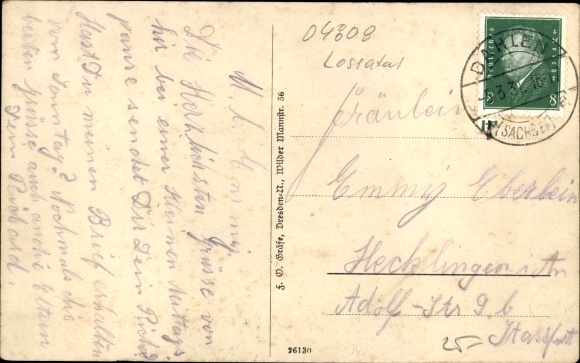 M. l. Emmi,
Die Herzlichsten Grüsse von
hir bei einer kleinen Mittags
pause sendet Dir Dein Richard
Hast Du meinen Brief erhalten
von Sonntag? Nochmals die
besten grüsse auch an die Eltern
Dein Richard.
F. O. Gräfe, Dresden-N., Wilder Mannstr. 36
04808
Lossatal
DAHLEN
(SACHSEN)
8
8
Fräulein
Emmy Eberlein
Hecklingen i. An
Adolf-Str 9 b
Stassfurt
25-
26130